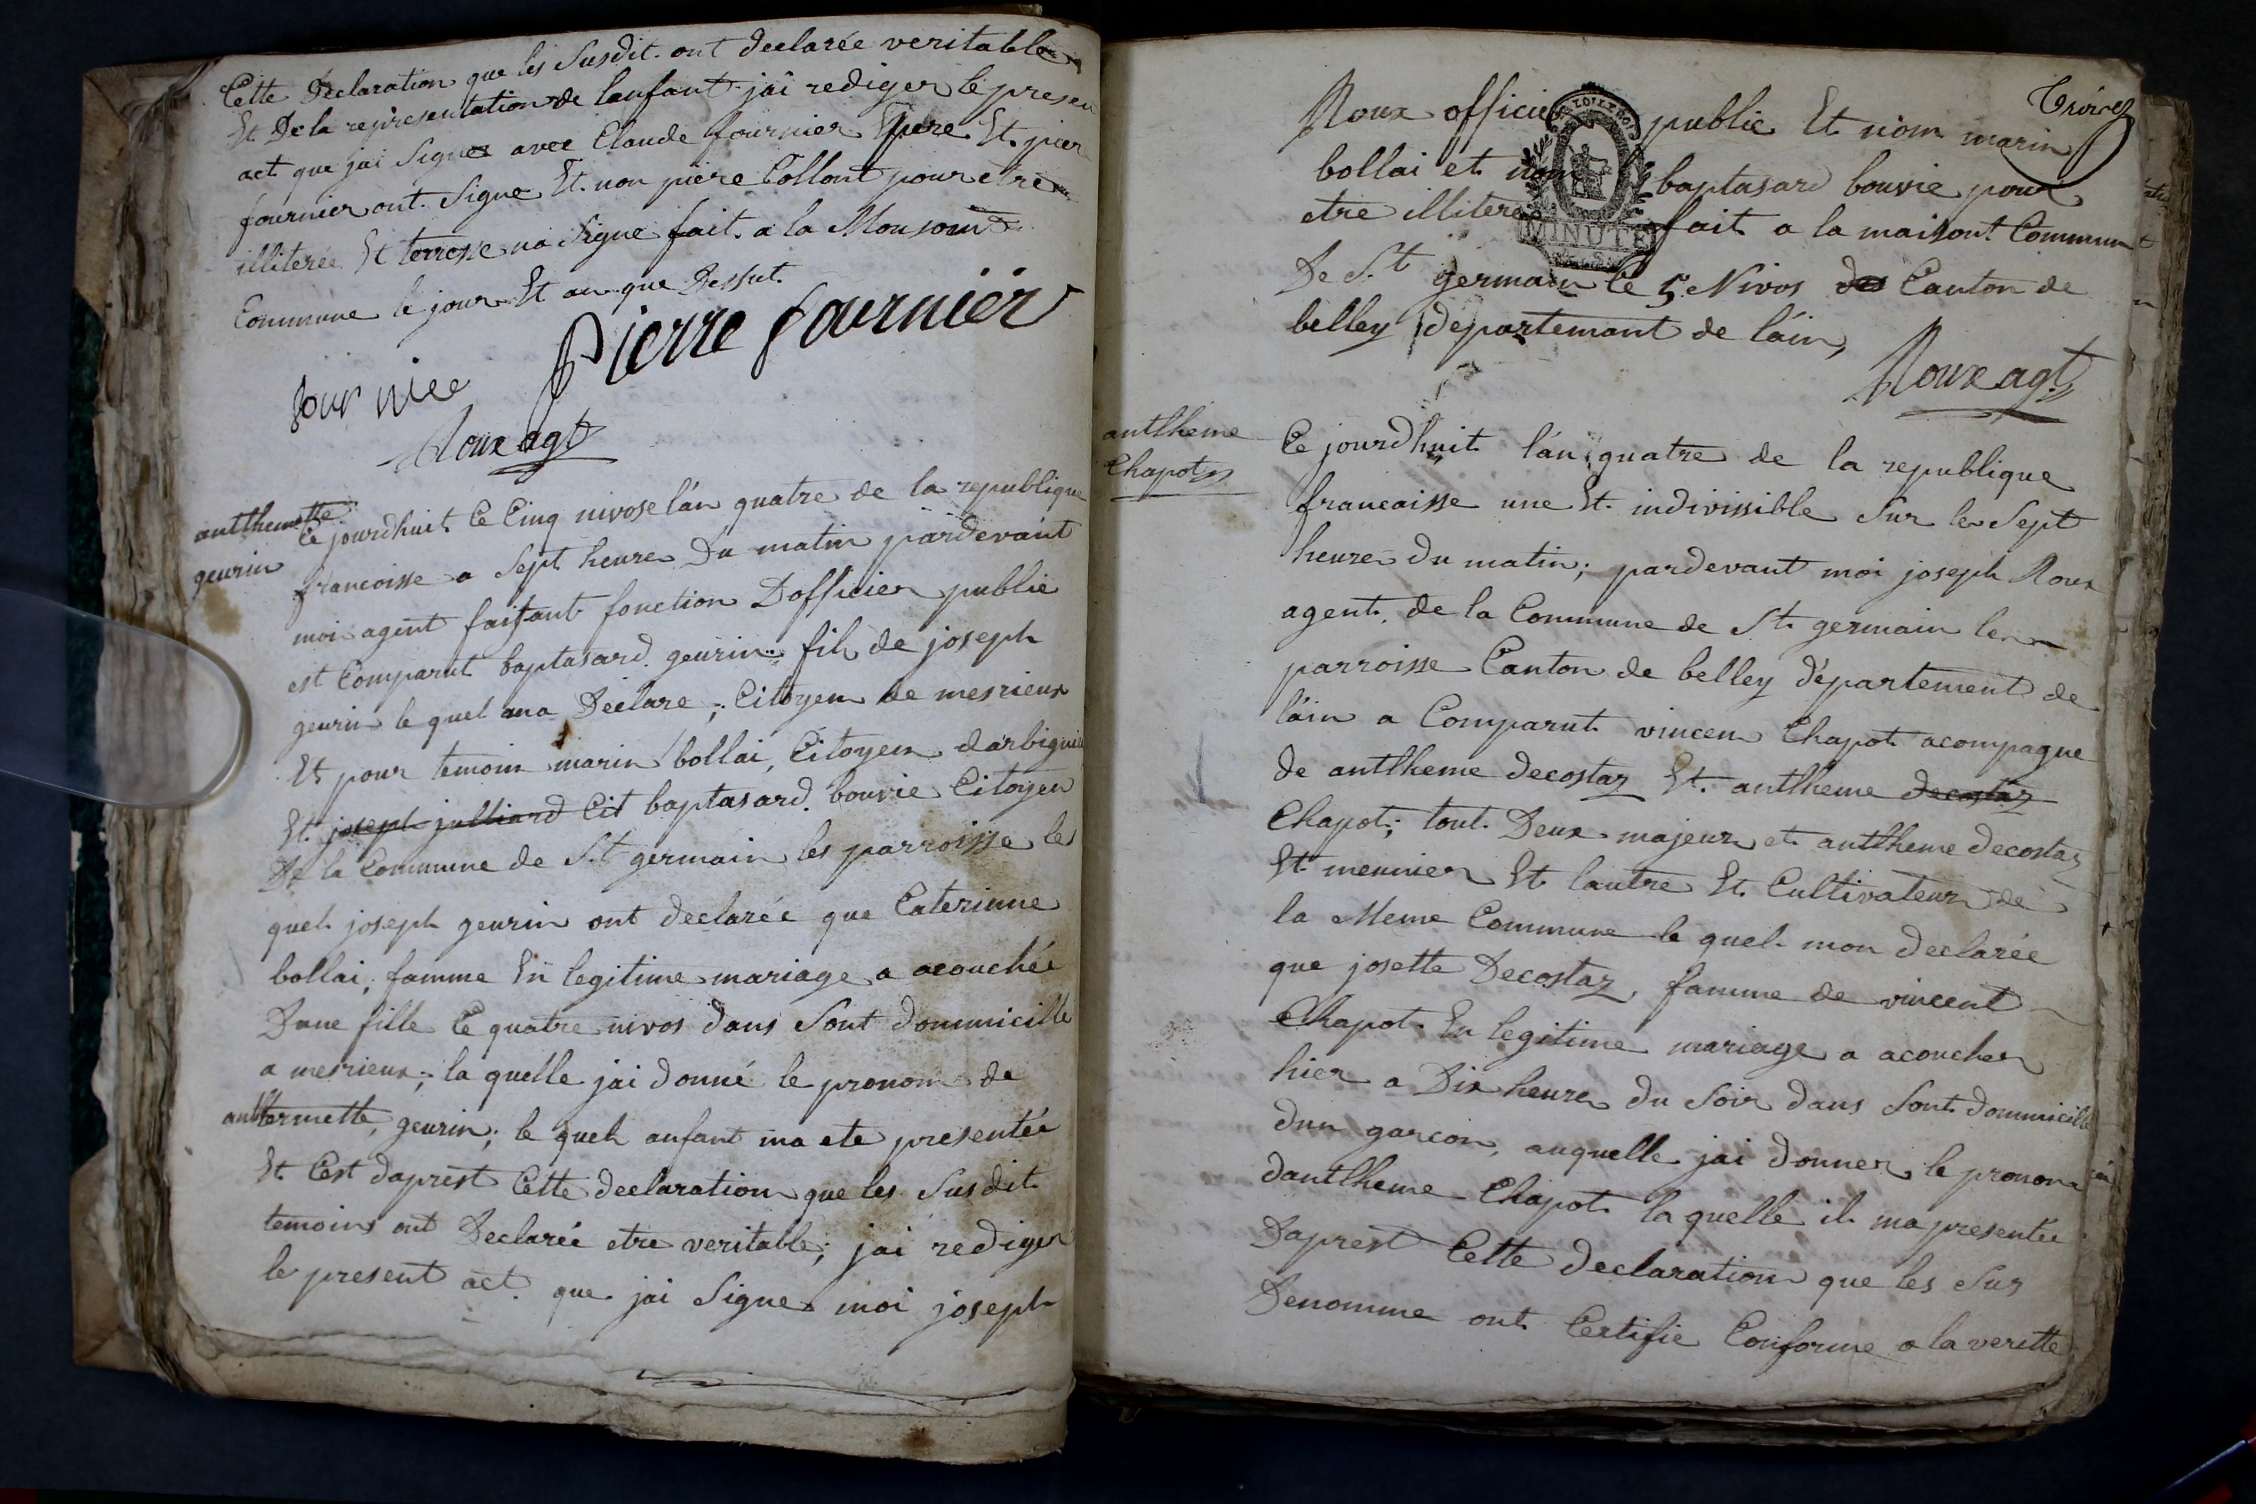 Cette Declaration que les Susdit ont declarée veritable
Et De la representation de lanfant jai rediger le presen
act que jai Signer avec Claude fournier père Et pier
fournier ont Signe Et non piere Collont pour etre
illiterée Et terrosse na Signe fait a la Monsont
Commune le jour Et an que Dessut
Pierre fournier
four nier
Roux agt
antthemette
geurin
Ce jourdhuit Ce Cinq nivose l'an quatre de la republique
francoisse a Sept heure Du matin pardevant
moi agent faisant fonction Dofficier public
est Comparut baptasard geurin fils de joseph
geurin le quel ma Declare ; Citoyen de mesrieux
Et pour temoin marin bollai, Citoyen darbignieu
Et joseph julliard Cit baptasard bouvie Citoyen
De la Commune de St germain les parroisse les
quel joseph geurin ont declarée que Caterinne
bollai, famme En legitime mariage a acouchée
Dune fille Ce quatre nivos dans Sont dommicille
a mesrieux ; la quelle jai donné le pronom de
anttermette, geurin ; le quel anfant ma ete presentée
Et Cest daprest Cette declaration que les Susdit
temoins ont Declarée etre veritable ; jai rediger
le present act que jai Signer moi joseph
Troire
Roux officier public Et nom marin
bollai et nom baptasard bouvie pour
etre illitere fait a la maisont Commun
MINUTE
De St germain le 5 Nivos des Canton de
belley departemant de l'ain,
Roux agt
antlheme
Chapot
Ce jourdhuit l'an quatre de la republique
francaisse une Et indivissible Sur les Sept
heure du matin ; pardevant moi joseph Roux
agent de la Commune de St germain les
parroisse Canton de belley département de
l'ain a Comparut vincen Chapot acompagne
de antlheme decostaz Et antlheme decostaz
Chapot ; tout Deux majeur et antlheme decostaz
Et meunier Et lautre Et Cultivateur de
la Meme Commune le quel mon declarée
que josette Decostaz, famme de vincent
Chapot En legitime mariage a acoucher
hier a Dix heure du Soir dans Sont dommicille
dun garcon, auquelle jai donner le pronom
dantlheme Chapot la quelle il ma presentée
Daprest Cette declaration que les Sus
Denomme ont Certifie Conforme a la verette